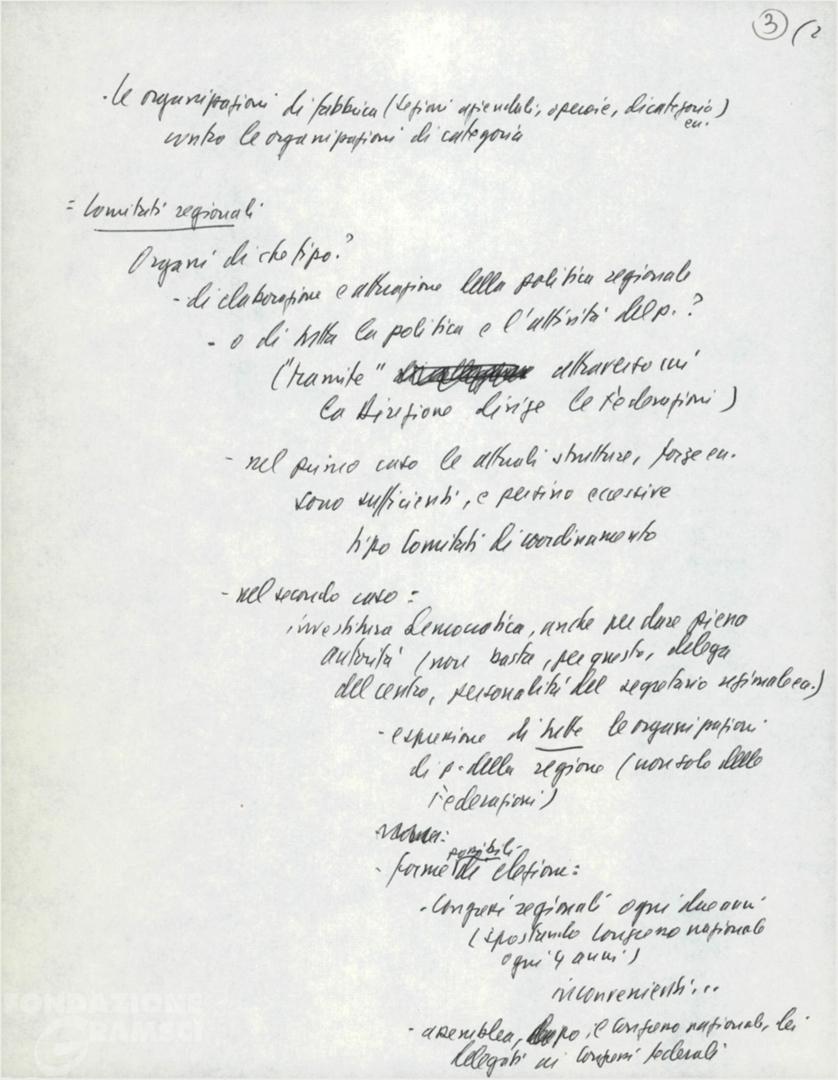 3 (2
· le organizzazioni di fabbrica (sezioni aziendali, operaie, di categoria)
ecc.
contro le organizzazioni di categoria
= Comitati regionali
Organi di che tipo?
- di elaborazione e attuazione della politica regionale
- o di tutta la politica e l'attività del p. ?
("tramite" attraverso cui
la Direzione dirige le Federazioni)
- nel primo caso le attuali strutture, forze ecc.
sono sufficienti, e persino eccessive
tipo Comitati di coordinamento
- nel secondo caso =
investitura democratica, anche per dare piena
autorità (non basta, per questo, delega
del centro, personalità del segretario regionale ecc.)
- espressione di tutte le organizzazioni
di p. della regione (non solo delle
Federazioni)
possibili
- forme di elezione:
- Congressi regionali ogni due anni
(spostando Congresso nazionale
ogni 4 anni)
inconvenienti...
- assemblea, dopo il Congresso nazionale, dei
delegati ai Congressi federali
FONDAZIONE
GRAMSCI